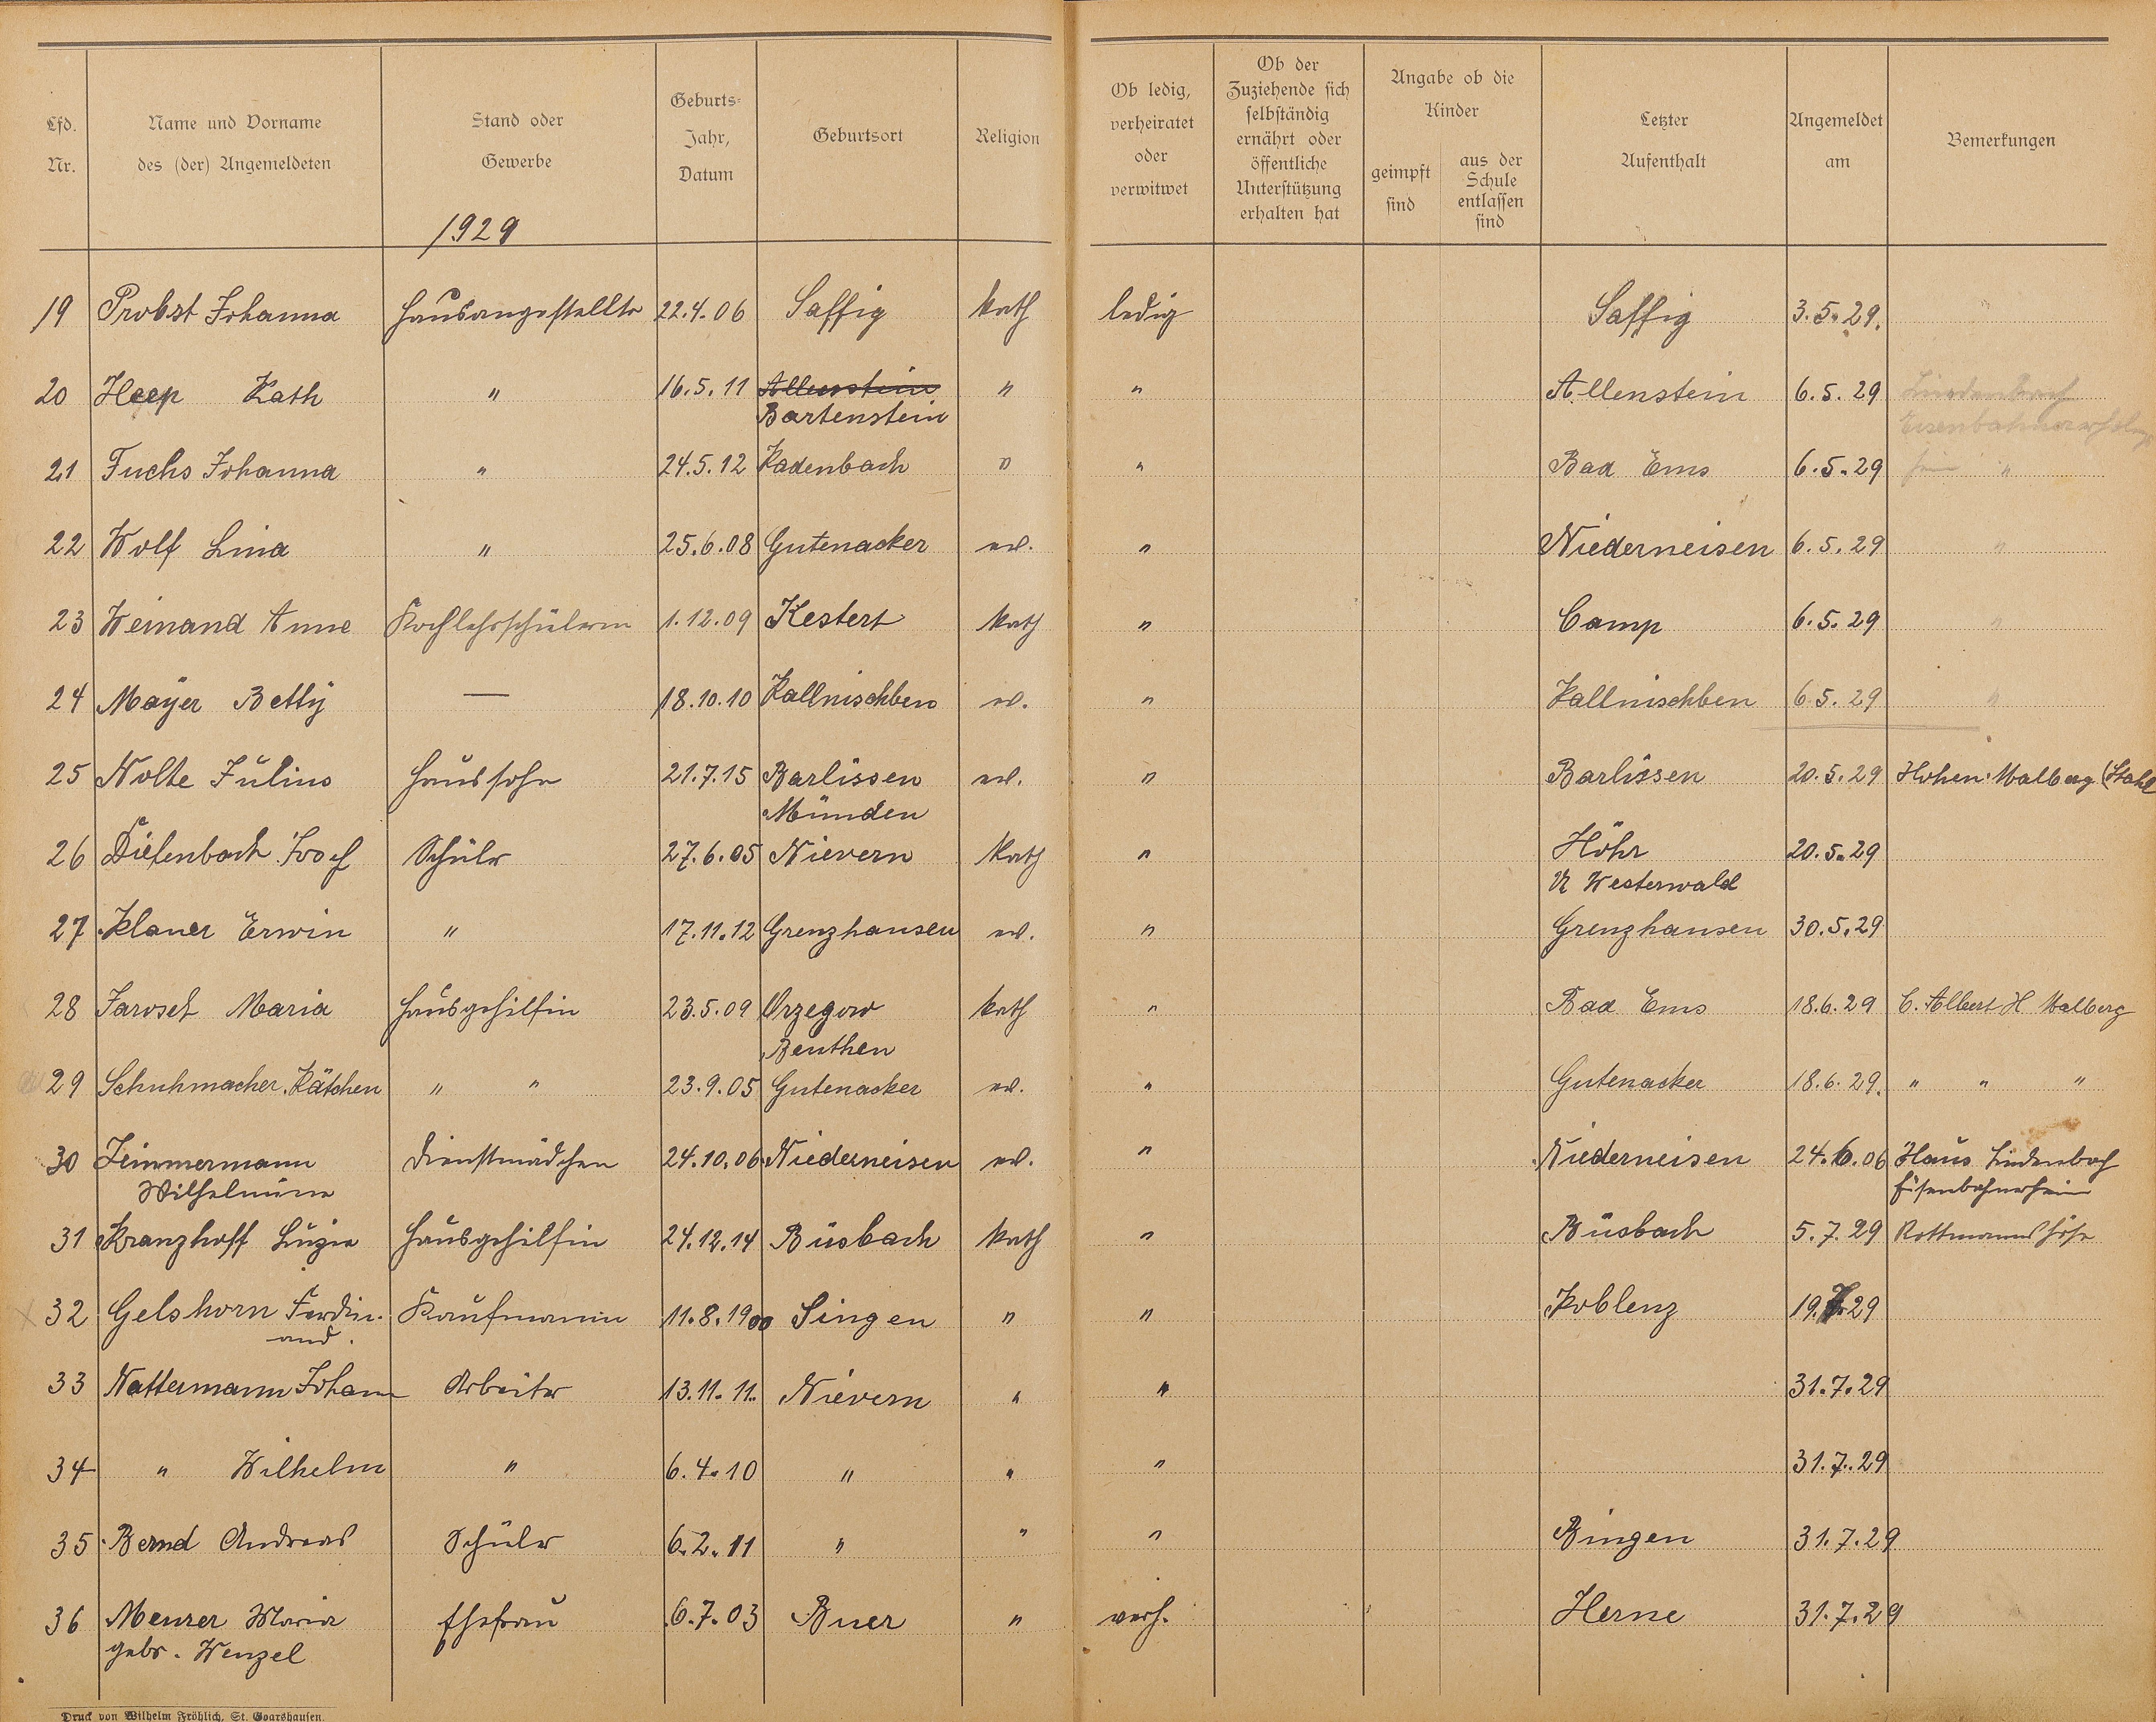 Lfd. Nr.
Name und Vorname des (der) Angemeldeten
Stand oder Gewerbe
Geburts- Jahr, Datum
Geburtsort
Religion
Ob ledig, verheiratet oder verwitwet
Ob der Zuziehende sich selbständig ernährt oder öffentliche Unterstützung erhalten hat
Angabe ob die Kinder
geimpft sind
aus der Schule entlassen sind
Letzter Aufenthalt
Angemeldet am
Bemerkungen
1929
19 Probst Johanna Hausangestellte 22.4.06 Saffig kath ledig Saffig 3.5.29. "
20 Heep Kath " 16.5.11 Allenstein " " Allenstein 6.5.29 Lindenbach
Bartenstein Eisenbahnerholungs
21 Fuchs Johanna " 24.5.12 Kadenbach " " Bad Ems 6.5.29 heim "
22 Wolf Lina " 25.6.08 Gutenacker evl. " Niederneisen 6.5.29 "
23 Weinand Anne Kochlehrschülerin 1.12.09 Kestert kath " Camp 6.5.29 "
24 Mayer Betty — 18.10.10 Kallnischken evl. " Kallnischken 6.5.29 "
25 Nolte Julius Haussohn 21.7.15 Barlissen evl. " Barlissen 20.5.29 Hohen Malberg (Stahl
Münden
26 Diefenbach Josef Schüler 27.6.05 Nievern kath " Höhr 20.5.29
Westerwald
27 Klaner Erwin " 17.11.12 Grenzhausen evl. " Grenzhausen 30.5.29
28 Jarosch Maria Hausgehilfin 23.5.09 Orzegow kath " Bad Ems 18.6.29 C. Albert H Malberg
Beuthen
29 Schuhmacher Kätchen " " 23.9.05 Gutenacker evl. " Gutenacker 18.6.29. " " "
30 Zimmermann Dienstmädchen 24.10.06 Niederneisen evl. " Niederneisen 24.6.06 Haus Lindenbach
Wilhelmine Eisenbahnerheim
31 Kranzhoff Luzia Hausgehilfin 24.12.14 Büsbach kath " Büsbach 5.7.29 Kottmannshöhe
32 Gelshorn Ferdin- Kaufmann 11.8.1900 Singen " " Koblenz 19.7.29
and.
33 Nattermann Johann Arbeiter 13.11.11. Nievern " " 31.7.29
34 " Wilhelm " 6.4.10 " " " 31.7.29
35 Bernd Andreas Schüler 6.2.11 " " " Bingen 31.7.29
36 Menzer Maria Ehefrau 6.7.03 Buer " verh. Herne 31.7.29
gebr. Wenzel
Druck von Wilhelm Fröhlich, St. Goarshausen.